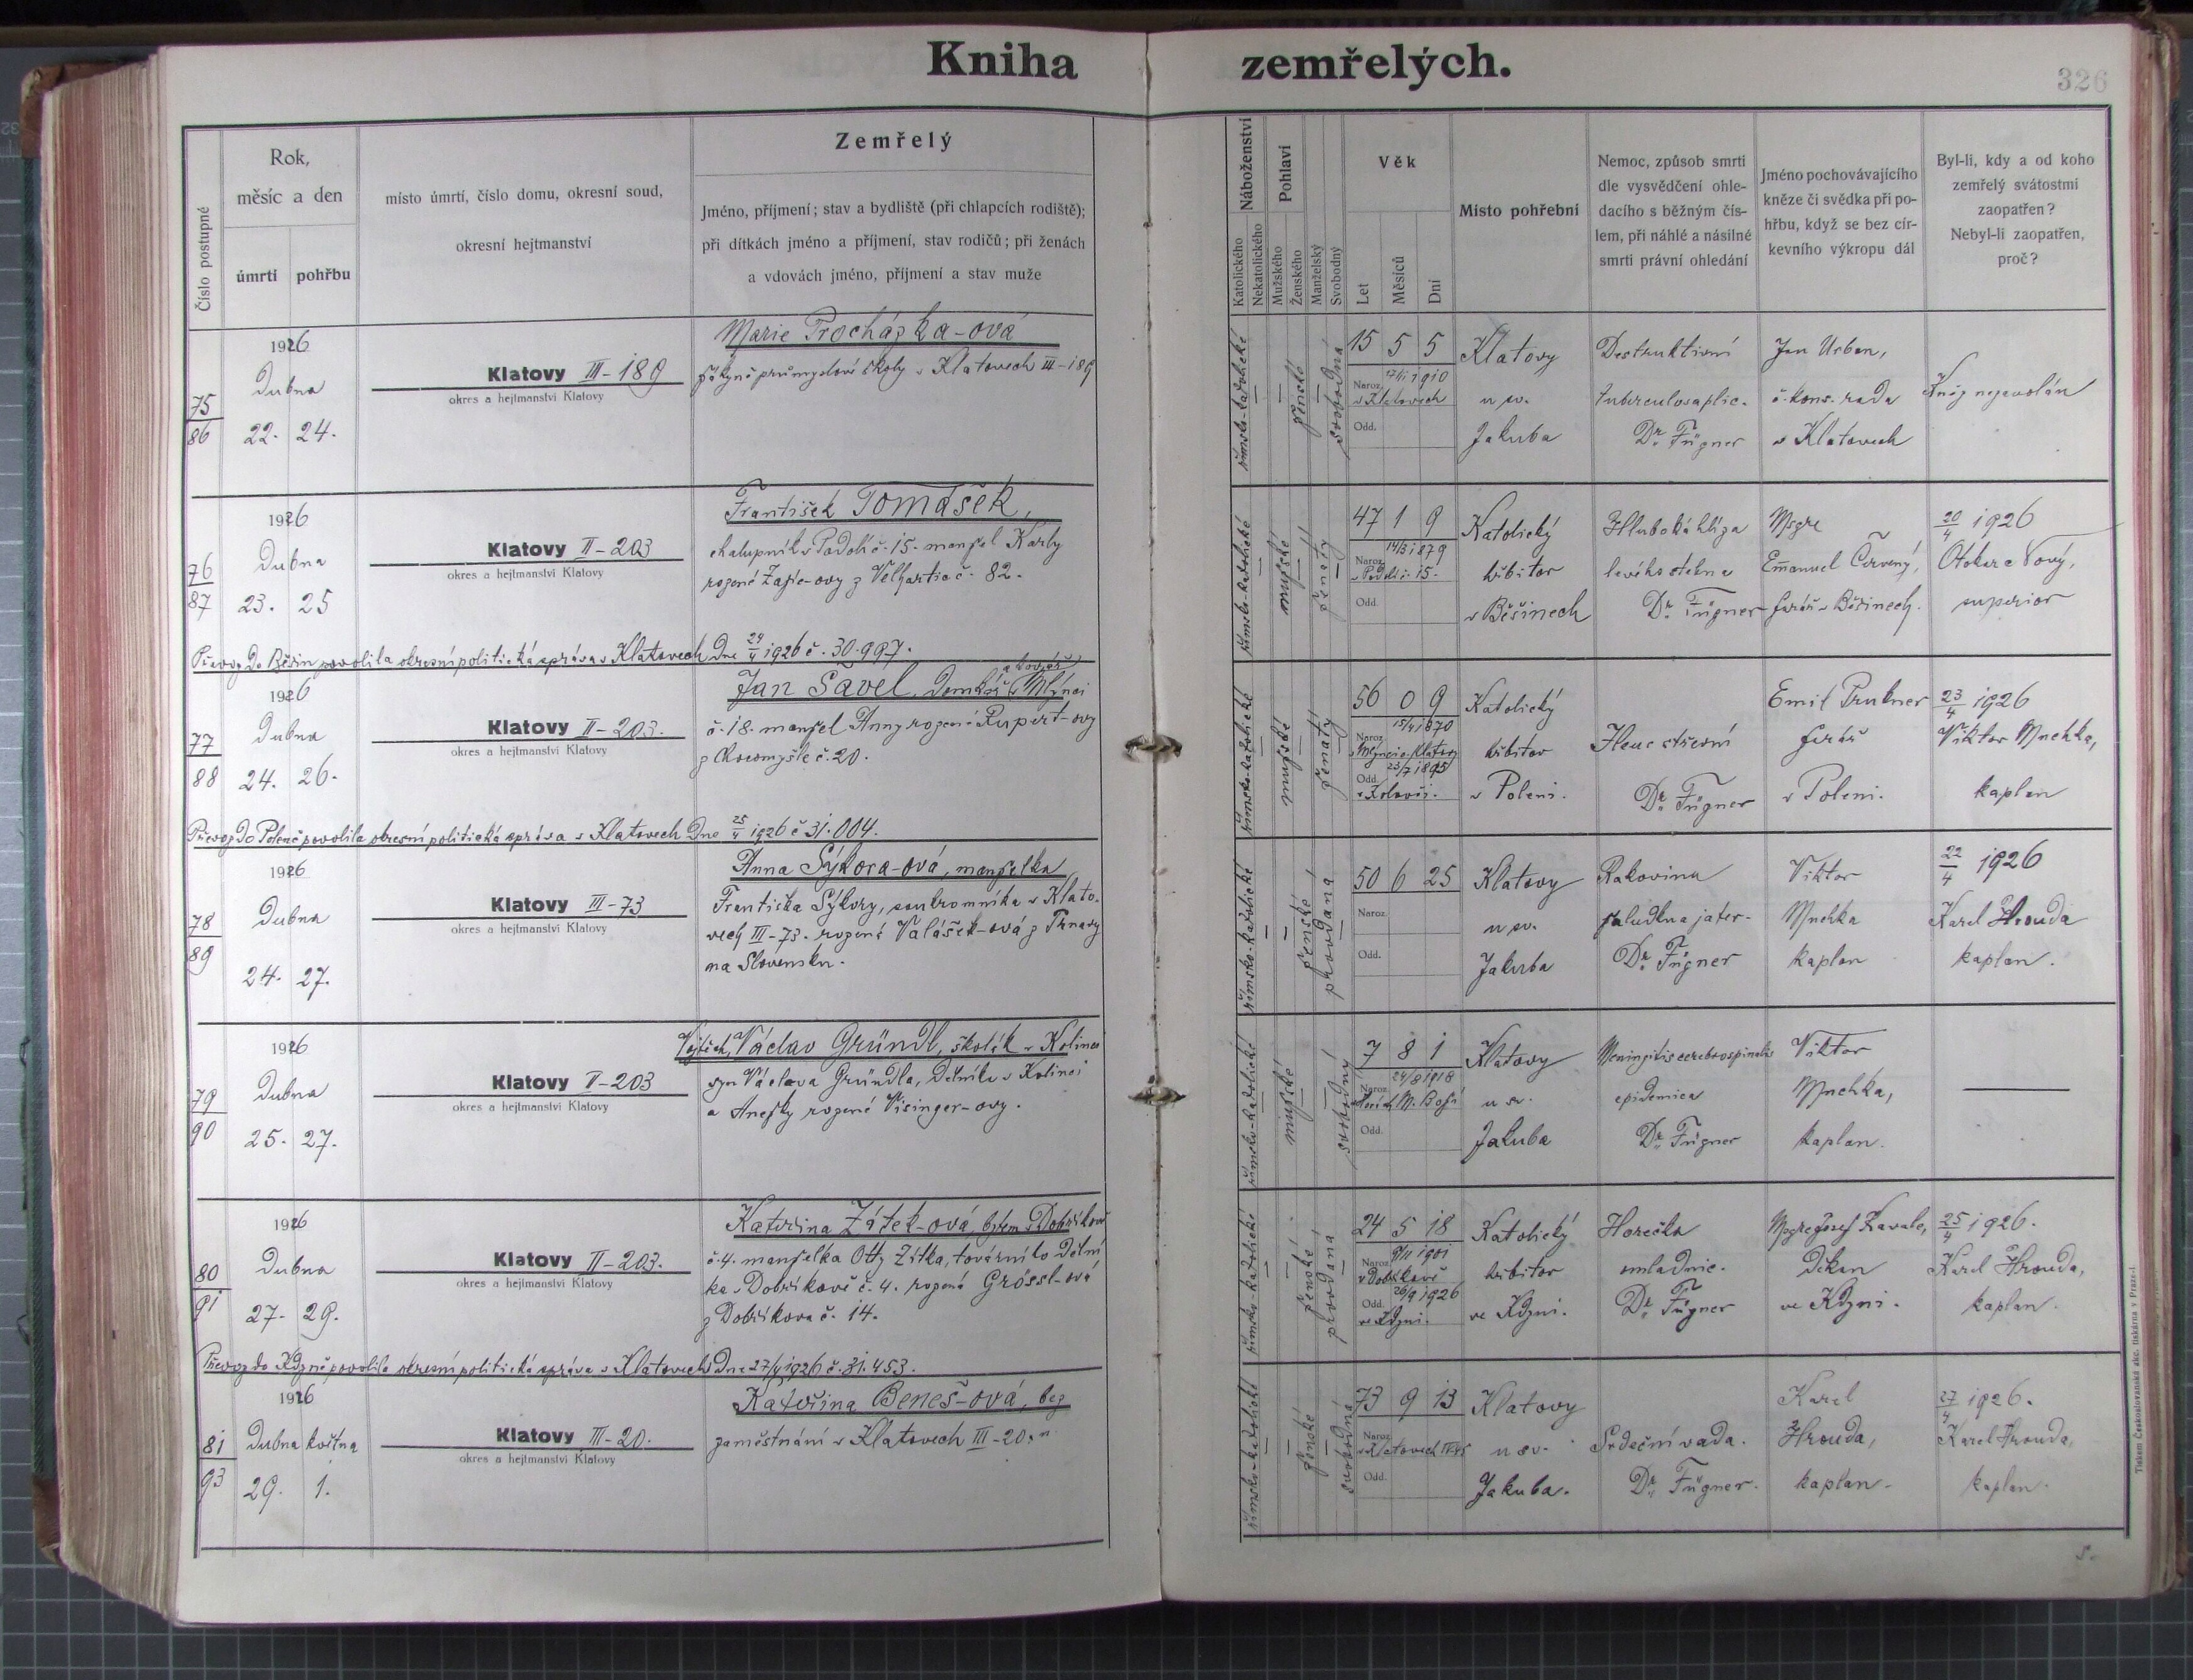 Kniha zemřelých.
326
Číslo postupné
Rok,
měsíc a den
úmrtí
pohřbu
místo úmrtí, číslo domu, okresní soud,
okresní hejtmanství
Zemřelý
Jméno, příjmení; stav a bydliště (při chlapcích rodiště);
při dítkách jméno a příjmení, stav rodičů; při ženách
a vdovách jméno, příjmení a stav muže
Náboženství
Katolického
Nekatolického
Pohlaví
Mužského
Ženského
Manželský
Svobodný
Věk
Let
Měsíců
Dní
Místo pohřební
Nemoc, způsob smrti
dle vysvědčení ohle-
dacího s běžným čís-
lem, při náhlé a násilné
smrti právní ohledání
Jméno pochovávajícího
kněze či svědka při po-
hřbu, když se bez cír-
kevního výkropu dál
Byl-li, kdy a od koho
zemřelý svátostmi
zaopatřen?
Nebyl-li zaopatřen,
proč?
75
86
1926
Dubna
22. 24.
Klatovy III-189
okres a hejtmanství Klatovy
Marie Procházka-ová
žákyně průmyslové školy v Klatovech III-189
římsko-katolické
ženské
svobodná
15 5 5
Naroz. 17/11 1910
v Klatovech
Odd.
Klatovy
u sv.
Jakuba
Destruktivní
tuberculosa plic.
Dr. Fügner
Jan Urban,
č. kons. rada
v Klatovech
Kněz nepovolán
76
87
1926
Dubna
23. 25
Klatovy II-203
okres a hejtmanství Klatovy
František Tomášek,
chalupník v Podolí č. 15. manžel Karly
rozené Zapie-ovy z Velhartic č. 82.
římsko-katolické
mužské
ženatý
47 1 9
Naroz. 14/3 1879
v Podolí č. 15.
Odd.
Katolický
hřbitov
v Běšinech
Hluboká hlíza
levého stehna
Dr. Fügner
Msgre
Emanuel Červený,
farář v Běšinech.
20/4 1926
Otokar Nový,
superior
Převoz do Běšin povolila okresní politická správa v Klatovech dne 24/4 1926 č. 30.997.
77
88
1926
Dubna
24. 26.
Klatovy II-203.
okres a hejtmanství Klatovy
Jan Šavel, domkář v Mlýnci
č. 18. manžel Anny rozené Rupert-ovy
z Chocomyšle č. 20.
římsko-katolické
mužské
ženatý
56 0 9
Naroz. 15/4 1870
v Mlýnci o. Klatovy
Odd. 23/7 1895
v Kolovči.
Katolický
hřbitov
v Poleni.
Ileus střevní
Dr. Fügner
Emil Prubner
farář
v Poleni.
23/4 1926
Viktor Mnehka,
kaplan
Převoz do Poleně povolila okresní politická správa v Klatovech dne 25/4 1926 č 31.004.
78
89
1926
Dubna
24. 27.
Klatovy III-73
okres a hejtmanství Klatovy
Anna Sýkora-ová, manželka
Františka Sýkory, soukromníka v Klato-
vech III-73. rozená Valášek-ová z Trnavy
na Slovensku.
římsko-katolické
ženské
provdaná
50 6 25
Naroz.
Odd.
Klatovy
u sv.
Jakuba
Rakovina
žaludku a jater.
Dr. Fügner
Viktor
Mnehka
kaplan
22/4 1926
Karel Hrouda
kaplan.
79
90
1926
Dubna
25. 27.
Klatovy II-203
okres a hejtmanství Klatovy
Vojtěch, Václav Gründl, školák v Kolinci
syn Václava Gründla, dělníka v Kolinci
a Anežky rozené Visinger-ovy.
římsko-katolické
mužské
svobodný
7 8 1
Naroz. 24/8 1918
Odd.
Klatovy
u sv.
Jakuba
Meningitis cerebrospinalis
epidemica
Dr. Fügner
Viktor
Mnehka,
kaplan.
80
91
1926
Dubna
27. 29.
Klatovy II-203.
okres a hejtmanství Klatovy
Kateřina Zítek-ová, bytem v Dobříkově
č. 4. manželka Otty Zítka, továrního dělní
ka v Dobříkově č. 4. rozená Grössl-ová
z Dobříkova č. 14.
římsko-katolické
ženské
provdaná
24 5 18
Naroz. 9/11 1901
v Dobříkově
Odd. 26/9 1926
ve Kdyni.
Katolický
hřbitov
ve Kdyni.
Horečka
omladnic.
Dr. Fügner
Msgre Josef Kavale,
děkan
ve Kdyni.
25/4 1926.
Karel Hrouda,
kaplan.
Převoz do Kdyně povolila okresní politická správa v Klatovech dne 27/4 1926 č. 31.453.
81
93
1926
Dubna května
29. 1.
Klatovy III-20.
okres a hejtmanství Klatovy
Kateřina Beneš-ová, bez
zaměstnání v Klatovech III-20.
římsko-katolické
ženské
svobodná
73 9 13
Naroz.
v Klatovech
Odd.
Klatovy
u sv.
Jakuba.
Srdeční vada.
Dr. Fügner.
Karel
Hrouda,
kaplan.
27/4 1926.
Karel Hrouda,
kaplan.
Tiskem Československá akc. tiskárna v Praze-I.